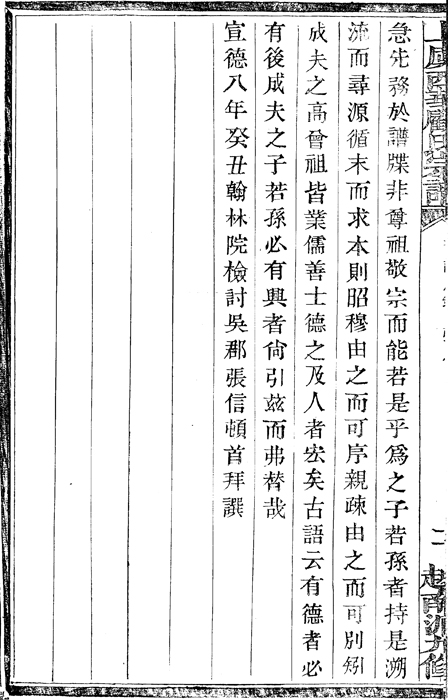 急先務於譜牒非尊祖敬宗而能若是乎爲之子若孫者持是溯
流而尋源循末而求本則昭穆由之而可序親疎由之而可別矧
成夫之高曾祖皆業儒善士德之及人者宏矣古語云有德者必
有後成夫之子若孫必有興者尙引玆而弗替哉
宣德八年癸丑翰林院檢討吳郡張信頓首拜譔
二